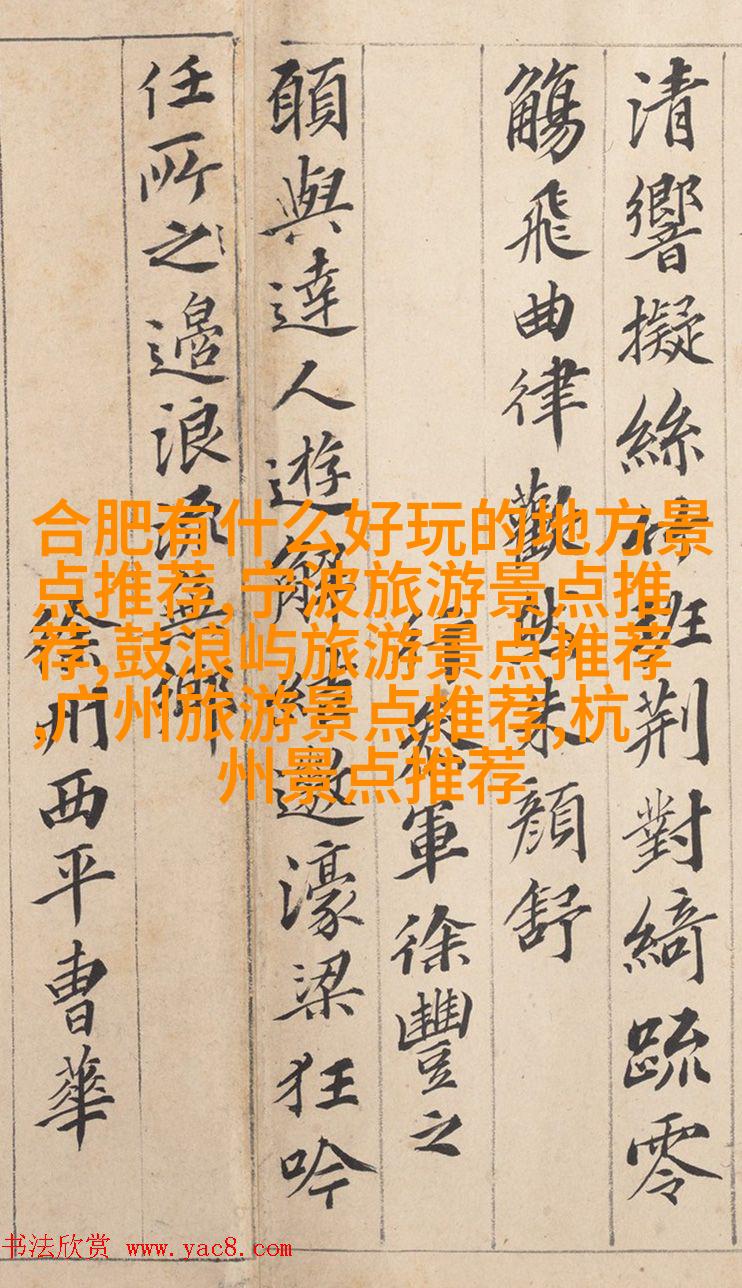 清響擬絲竹班荆對綺疏零
觴飛曲律歡然朱顏舒
行參軍徐豐之
願與達人遊解結遨濠梁狂吟
任所之邉浪流無鄉
徐州西平曹華
合肥有什么好玩的地方景
点推荐,宁波旅游景点推
荐,鼓浪屿旅游景点推荐
,广州旅游景点推荐,杭
州景点推荐
书法欣赏 www.yac8.com